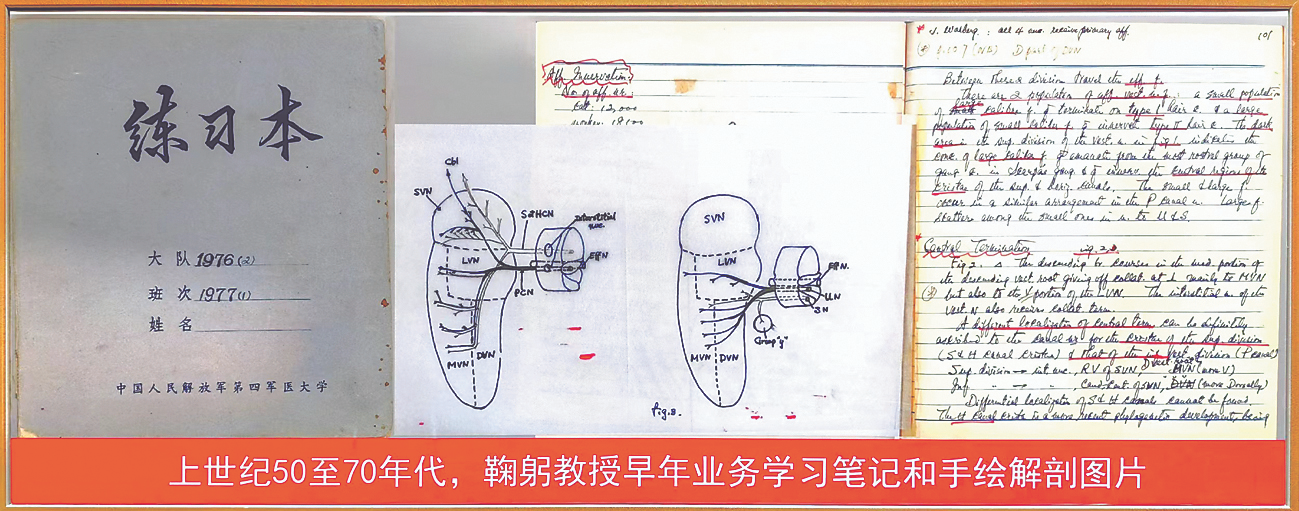 练习本
大队 1976(2)
班次 1977(1)
姓名
中国人民解放军第四军医大学
Aff Innervation.
No. of aff. ax.
Cat: 12,000
Cbl
SVN
S&HCN
Interstitial
nuc.
EffN
LVN
PCN
MVN
DVN
SVN
LVN
Eff N.
U.N
SN
Group "y"
MVN
DVN
Fig. 3.
: all 4 amp. receive primary aff.
101
Between these 2 division travel the eff f.
There are 2 population of aff vest. : a small population
of large caliber f. terminate on type I hair c. & a large
population of small caliber f. type II hair c. The dark
area in the sup. division of the vest. n. in fig. 1 indicates the
conc. of large caliber f. from the most rostral group of
gang c. in Scarpas gang. & the central regions of the
cristae of the sup. & horiz. canals. The small & large f.
occur in a similar arrangement in the P canal n. Large f.
scatter among the small ones in n. to U & S.
Central Termination fig. 2, 3.
Fig 2. The descending br. courses in the med. portion of
the descending vest root giving off collat. at mainly to MVN
but also to the portion of the LVN. The interstitial n. of the
vest. N also receives collat. term.
A different localization of central term. can be definitely
ascribed to the canal for the cristae of the sup. division
(S & H canal cristae) & that of the inf. vest. division (P canal)
Sup. division → int. nuc., RV of SVN, MVN (more V)
Inf. " → " , of SVN, (more Dorsally)
Differential localization of S & H canals cannot be found.
The H canal crista is a more recent phylogenetic development, being
上世纪50至70年代，鞠躬教授早年业务学习笔记和手绘解剖图片